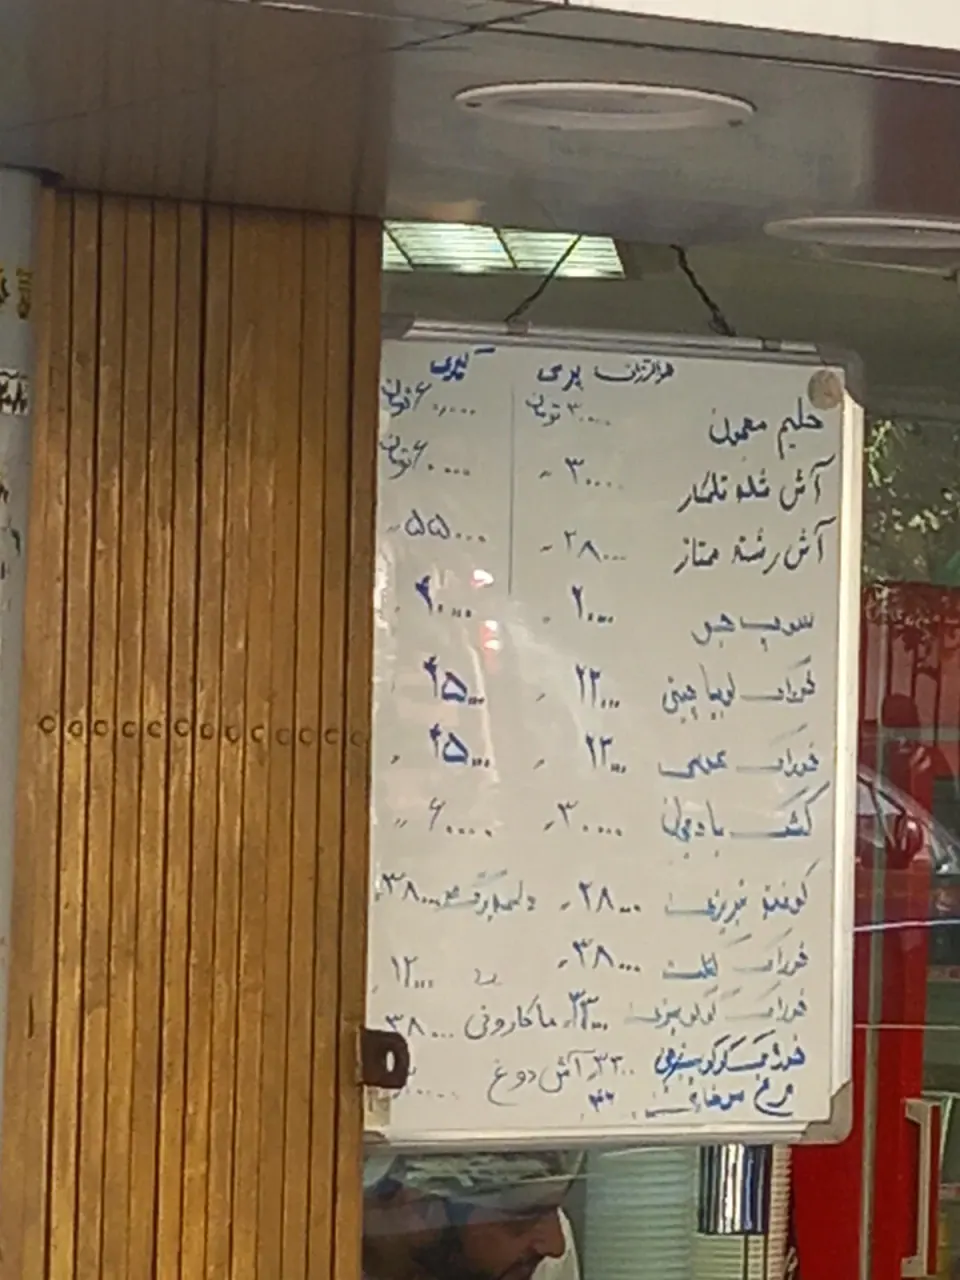 پرسی کیلویی
حلیم معمولی ۳۰۰۰۰ تومان ۶۰۰۰۰ تومان
آش شله قلمکار ۳۰۰۰۰ ۶۰۰۰۰ تومان
آش رشته ممتاز ۲۸۰۰۰ ۵۵۰۰۰
سوپ جو ۲۰۰۰۰ ۴۰۰۰۰
خوراک لوبیا چیتی ۲۳۰۰۰ ۴۵۰۰۰
خوراک عدسی ۲۳۰۰۰ ۴۵۰۰۰
کشک بادمجان ۳۰۰۰۰ ۶۰۰۰۰
کوفته تبریزی ۲۸۰۰۰ دلمه برگ ۳۸۰۰۰
خوراک کتلت ۳۸۰۰۰ ۱۲۰۰۰
خوراک ۳۳۰۰۰ ماکارونی ۳۸۰۰۰
۳۳۰۰۰ آش دوغ
مرغ